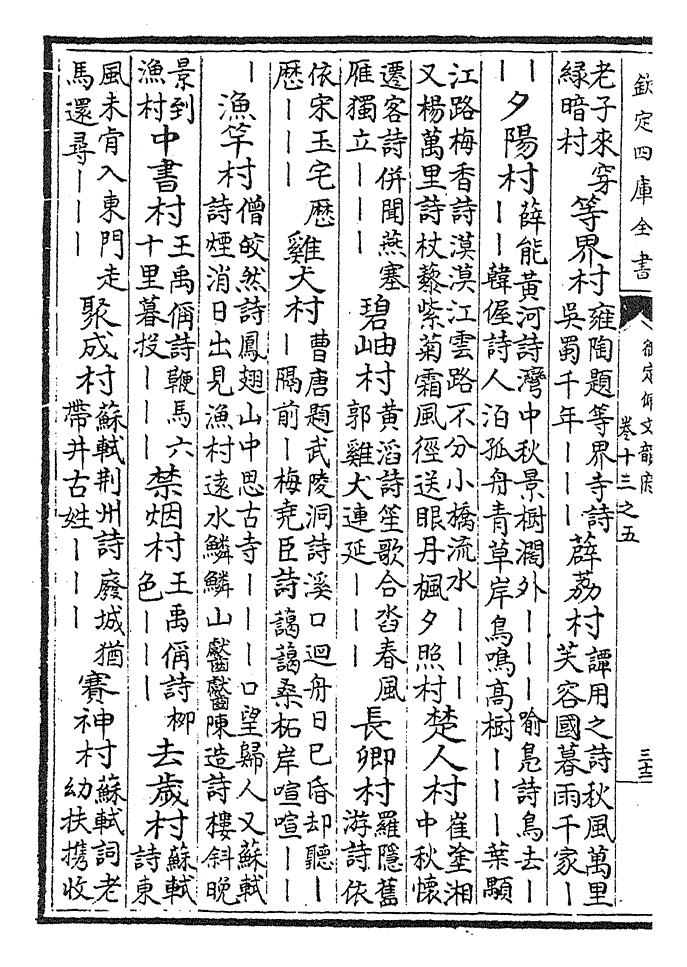 欽定四庫全書
御定佩文韻府
卷十三之五
老子來穿
緑暗村
等界村
雍陶題等界寺詩
吳蜀千年｜｜｜
薜荔村
譚用之詩秋風萬里
芙容國暮雨千家｜
｜｜
夕陽村
薛能黃河詩灣中秋景樹濶外｜｜｜喻鳧詩鳥去｜
｜｜韓偓詩人泊孤舟青草岸鳥鳴高樹｜｜｜葉顒
江路梅香詩漠漠江雲路不分小橋流水｜｜｜
又楊萬里詩杖藜紫菊霜風徑送眼丹楓夕照村
楚人村
崔塗湘
中秋懷
遷客詩併聞燕塞
雁獨立｜｜｜
碧岫村
黃滔詩笙歌合沓春風
郭雞犬連延｜｜｜
長卿村
羅隱舊
游詩依
依宋玉宅歷
歷｜｜｜
雞犬村
曹唐題武陵洞詩溪口迴舟日已昏却聽｜
｜隔前｜梅堯臣詩藹藹桑柘岸喧喧｜｜
｜
漁竿村
僧皎然詩鳳翅山中思古寺｜｜｜口望歸人又蘇軾
詩煙消日出見漁村遠水鱗鱗山齾齾陳造詩樓斜晚
景到
漁村
中書村
王禹偁詩鞭馬六
十里暮投｜｜｜
禁烟村
王禹偁詩柳
色｜｜｜
去歲村
蘇軾
詩東
風未肯入東門走
馬還尋｜｜｜
聚成村
蘇軾荆州詩廢城猶
帶井古姓｜｜｜
賽神村
蘇軾詞老
幼扶攜收